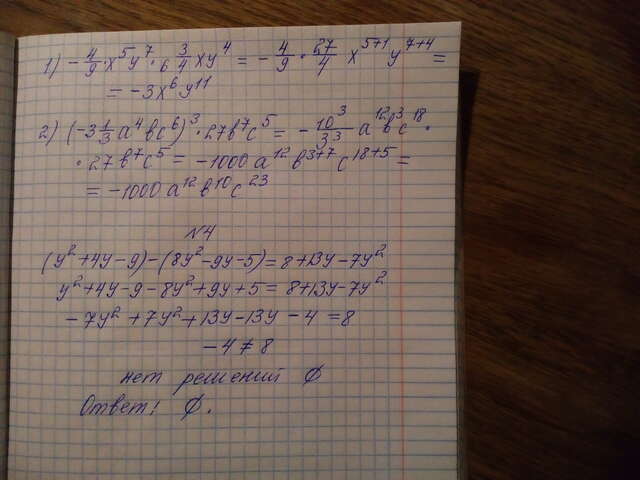 1) -4/9 · x⁵y⁷ · 6 3/4 xy⁴ = -4/9 · 27/4 x⁵⁺¹ y⁷⁺⁴ =
= -3x⁶y¹¹
2) (-3 1/3 a⁴bc⁶)³ · 27b⁷c⁵ = -10³/3³ a¹²b³c¹⁸ ·
· 27b⁷c⁵ = -1000 a¹² b³⁺⁷ c¹⁸⁺⁵ =
= -1000 a¹² b¹⁰ c²³
N4
(y²+4y-9)-(8y²-9y-5)=8+13y-7y²
y²+4y-9-8y²+9y+5=8+13y-7y²
-7y²+7y²+13y-13y-4=8
-4≠8
нет решений ∅
Ответ: ∅.